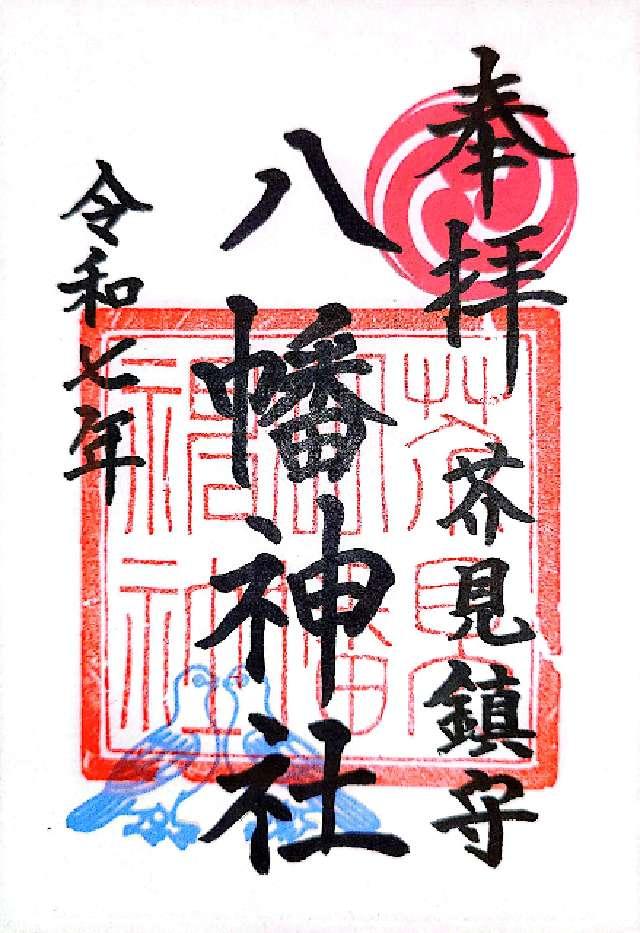 奉拝
芥見鎮守
八幡神社
令和七年
芥見
八幡
神社